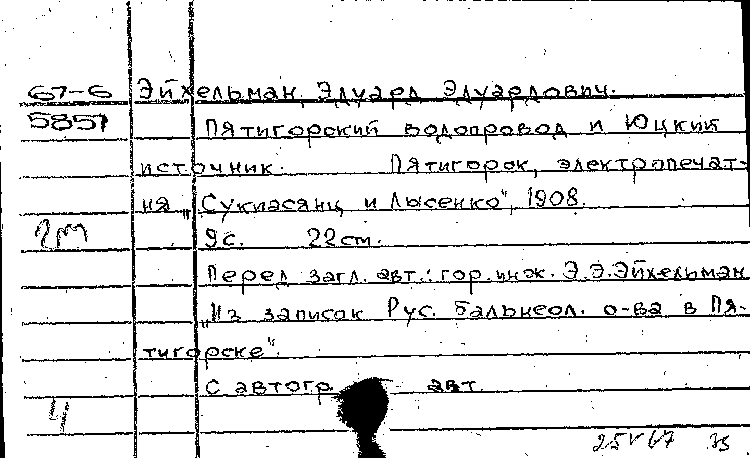 67-6 Эйхельман, Эдуард Эдуардович.
5857 Пятигорский водопровод и Юцкий
источник. Пятигорск, электропечат-
ня „Сукиасянц и Лысенко", 1908.
9 с. 22 см.
Перед загл. авт.: гор. инж. Э.Э. Эйхельман
„Из записок Рус. бальнеол. о-ва в Пя-
тигорске".
С автогр. авт.
4
25 V 67